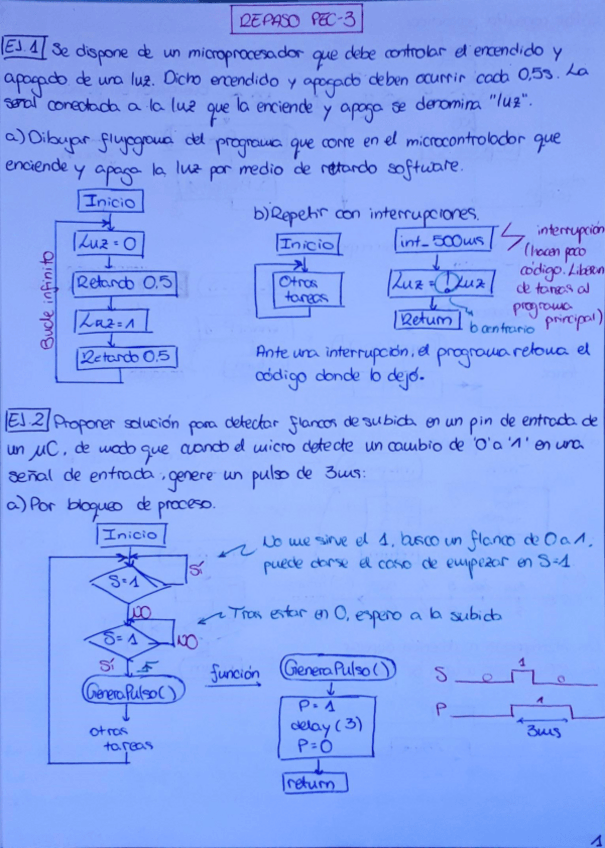 REPASO PEC-3
EJ.1 Se dispone de un microprocesador que debe controlar el encendido y
apagado de una luz. Dicho encendido y apagado deben ocurrir cada 0,5s. La
señal conectada a la luz que la enciende y apaga se denomina "luz".
a) Dibujar flujograma del programa que corre en el microcontrolador que
enciende y apaga la luz por medio de retardo software.
Inicio
Luz = 0
Retardo 0,5
Luz = 1
Retardo 0,5
Bucle infinito
b) Repetir con interrupciones.
Inicio
Otras
tareas
int_500ms
Luz = !Luz
Return
lo contrario
interrupción
(hacen poco
código. Liberan
de tareas al
programa
principal)
Ante una interrupción, el programa retoma el
código donde lo dejó.
EJ.2 Proponer solución para detectar flancos de subida en un pin de entrada de
un μC, de modo que cuando el micro detecte un cambio de '0' a '1' en una
señal de entrada, genere un pulso de 3ms:
a) Por bloqueo de proceso.
Inicio
S=1
Sí
NO
S=1
NO
Sí
GeneraPulso()
otras
tareas
No me sirve el 1, busco un flanco de 0 a 1.
puede darse el caso de empezar en S=1
Tras estar en 0, espero a la subida
función
GeneraPulso()
P = 1
delay(3)
P=0
return
S 0 1 0
P 1
3ms
1